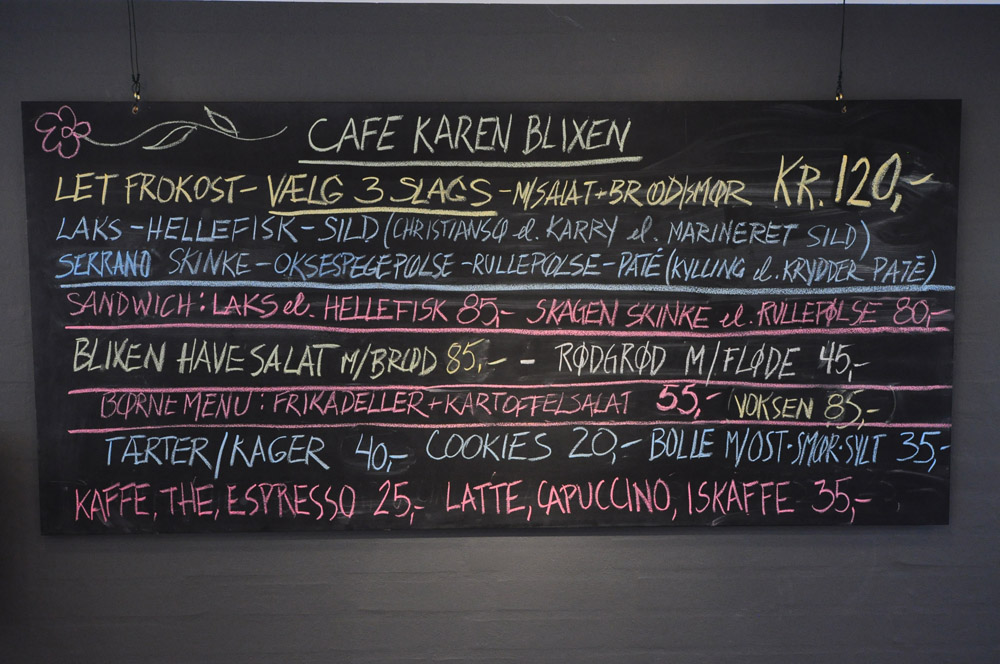 CAFE KAREN BLIXEN
LET FROKOST - VÆLG 3 SLAGS - M/SALAT + BRØD/SMØR KR. 120,-
LAKS - HELLEFISK - SILD (CHRISTIANSØ el. KARRY el. MARINERET SILD)
SERRANO SKINKE - OKSESPEGEPØLSE - RULLEPØLSE - PATÉ (KYLLING el. KRYDDER PATÉ)
SANDWICH: LAKS el. HELLEFISK 85,- SKAGEN SKINKE el. RULLEPØLSE 80,-
BLIXEN HAVE SALAT M/BRØD 85,- - RØDGRØD M/FLØDE 45,-
BØRNEMENU: FRIKADELLER + KARTOFFELSALAT 55,- VOKSEN 85,-
TÆRTER/KAGER 40,- COOKIES 20,- BOLLE M/OST·SMØR·SYLT 35,-
KAFFE, THE, ESPRESSO 25,- LATTE, CAPUCCINO, ISKAFFE 35,-